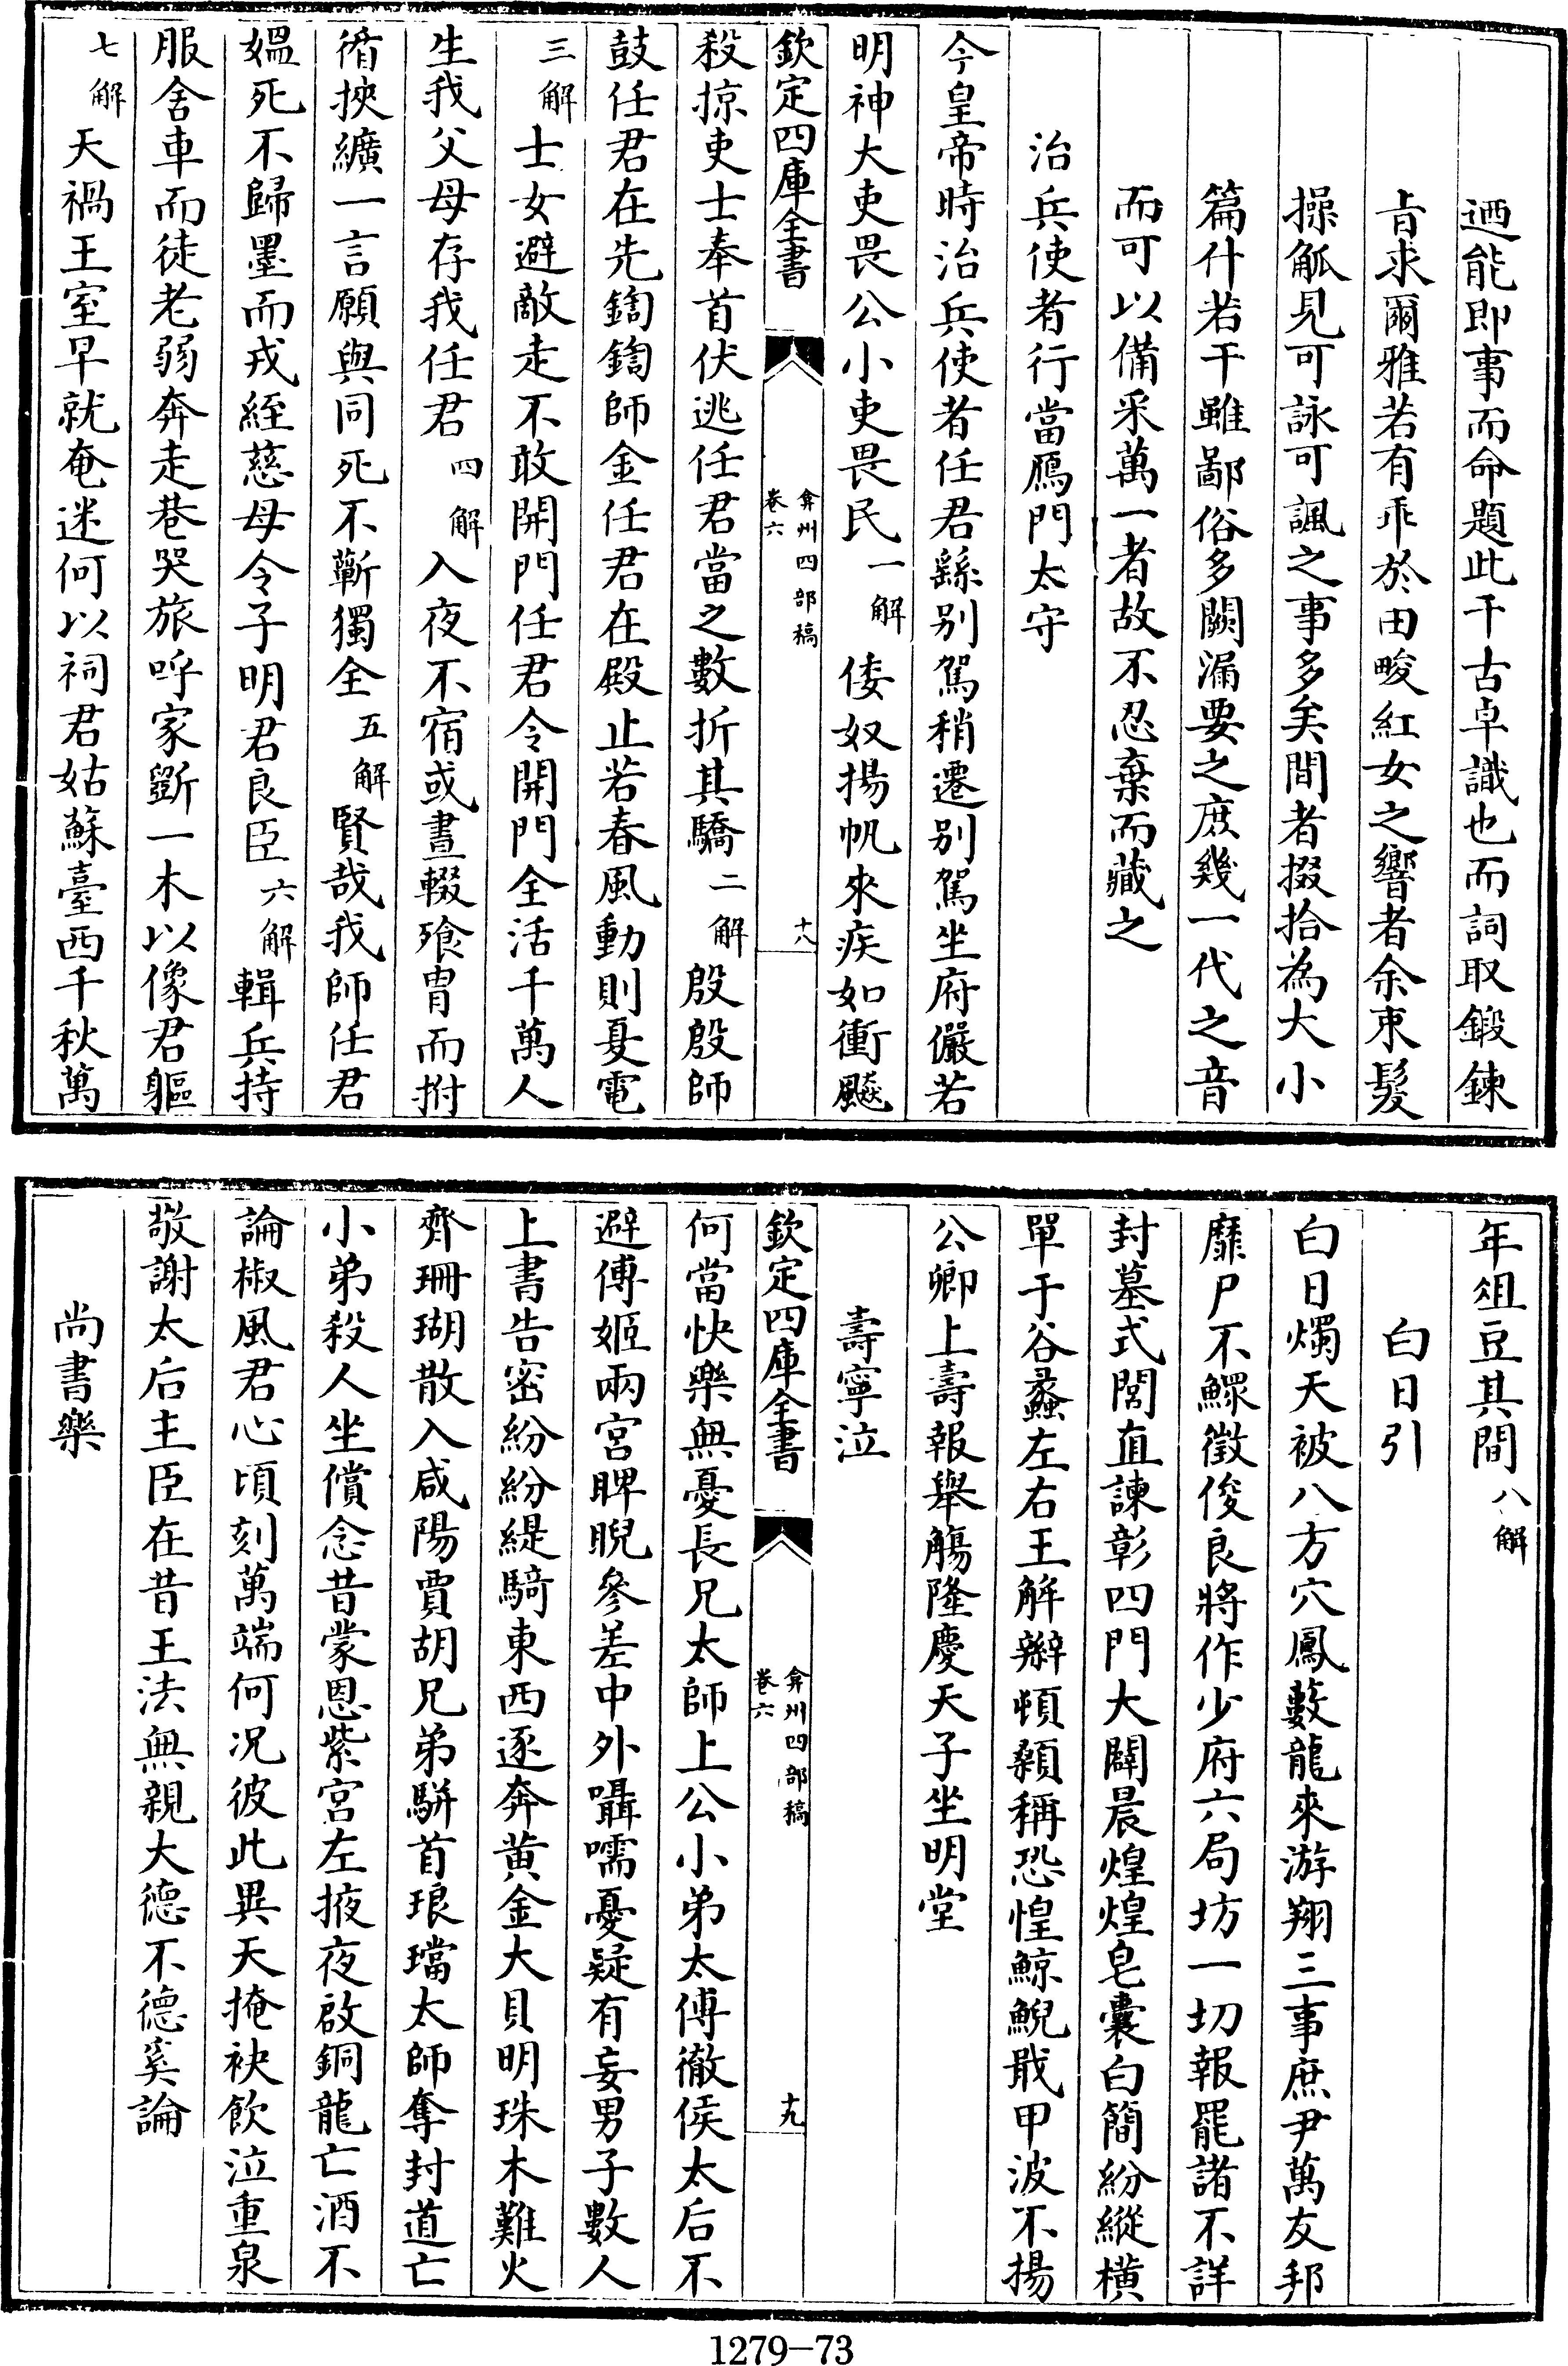 迺能即事而命題此千古卓識也而詞取鍛鍊
旨求爾雅若有乖於田畯紅女之響者余束髮
操觚見可詠可諷之事多矣間者掇拾為大小
篇什若干雖鄙俗多闕漏要之庶幾一代之音
而可以備采萬一者故不忍棄而藏之
治兵使者行當鴈門太守
今皇帝時治兵使者任君繇别駕稍遷别駕坐府儼若
明神大吏畏公小吏畏民一解倭奴揚帆來疾如衝飇
欽定四庫全書
弇州四部稿
卷六
十八
殺掠吏士奉首伏逃任君當之數折其驕二解殷殷師
鼓任君在先鍧鍧師金任君在殿止若春風動則戛電
三解士女避敵走不敢開門任君令開門全活千萬人
生我父母存我任君四解入夜不宿或晝輟飱冑而拊
循挾纊一言願與同死不蘄獨全五解賢哉我師任君
媪死不歸墨而戎絰慈母令子明君良臣六解輯兵持
服舍車而徒老弱奔走巷哭旅呼家斲一木以像君軀
七解天禍王室早就奄迷何以祠君姑蘇臺西千秋萬
年俎豆其間八解
白日引
白日燭天被八方穴鳳藪龍來游翔三事庶尹萬友邦
靡尸不鰥徵俊良將作少府六局坊一切報罷諸不詳
封墓式閭直諫彰四門大闢晨煌煌皂囊白簡紛縱橫
單于谷蠡左右王解辮頓顙稱恐惶鯨鯢戢甲波不揚
公卿上壽報舉觴隆慶天子坐明堂
壽寧泣
欽定四庫全書
弇州四部稿
卷六
十九
何當快樂無憂長兄太師上公小弟太傅徹侯太后不
避傅姬兩宮睥睨參差中外囁嚅憂疑有妄男子數人
上書告密紛紛緹騎東西逐奔黄金大貝明珠木難火
齊珊瑚散入咸陽賈胡兄弟駢首琅璫太師奪封道亡
小弟殺人坐償念昔蒙恩紫宮左掖夜啟銅龍亡酒不
論椒風君心頃刻萬端何况彼此異天掩袂飲泣重泉
敬謝太后主臣在昔王法無親大德不德奚論
尚書樂
1279-73